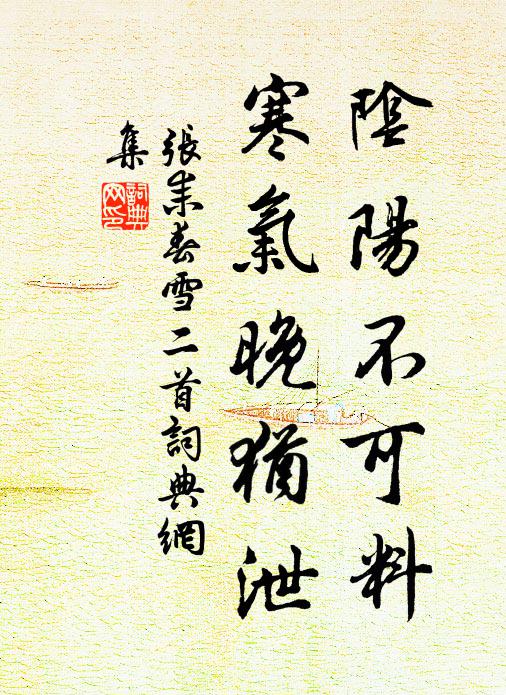 陰陽不可料
寒氣晚猶泄
張耒春雪二首詞典網
集
詞典
网印